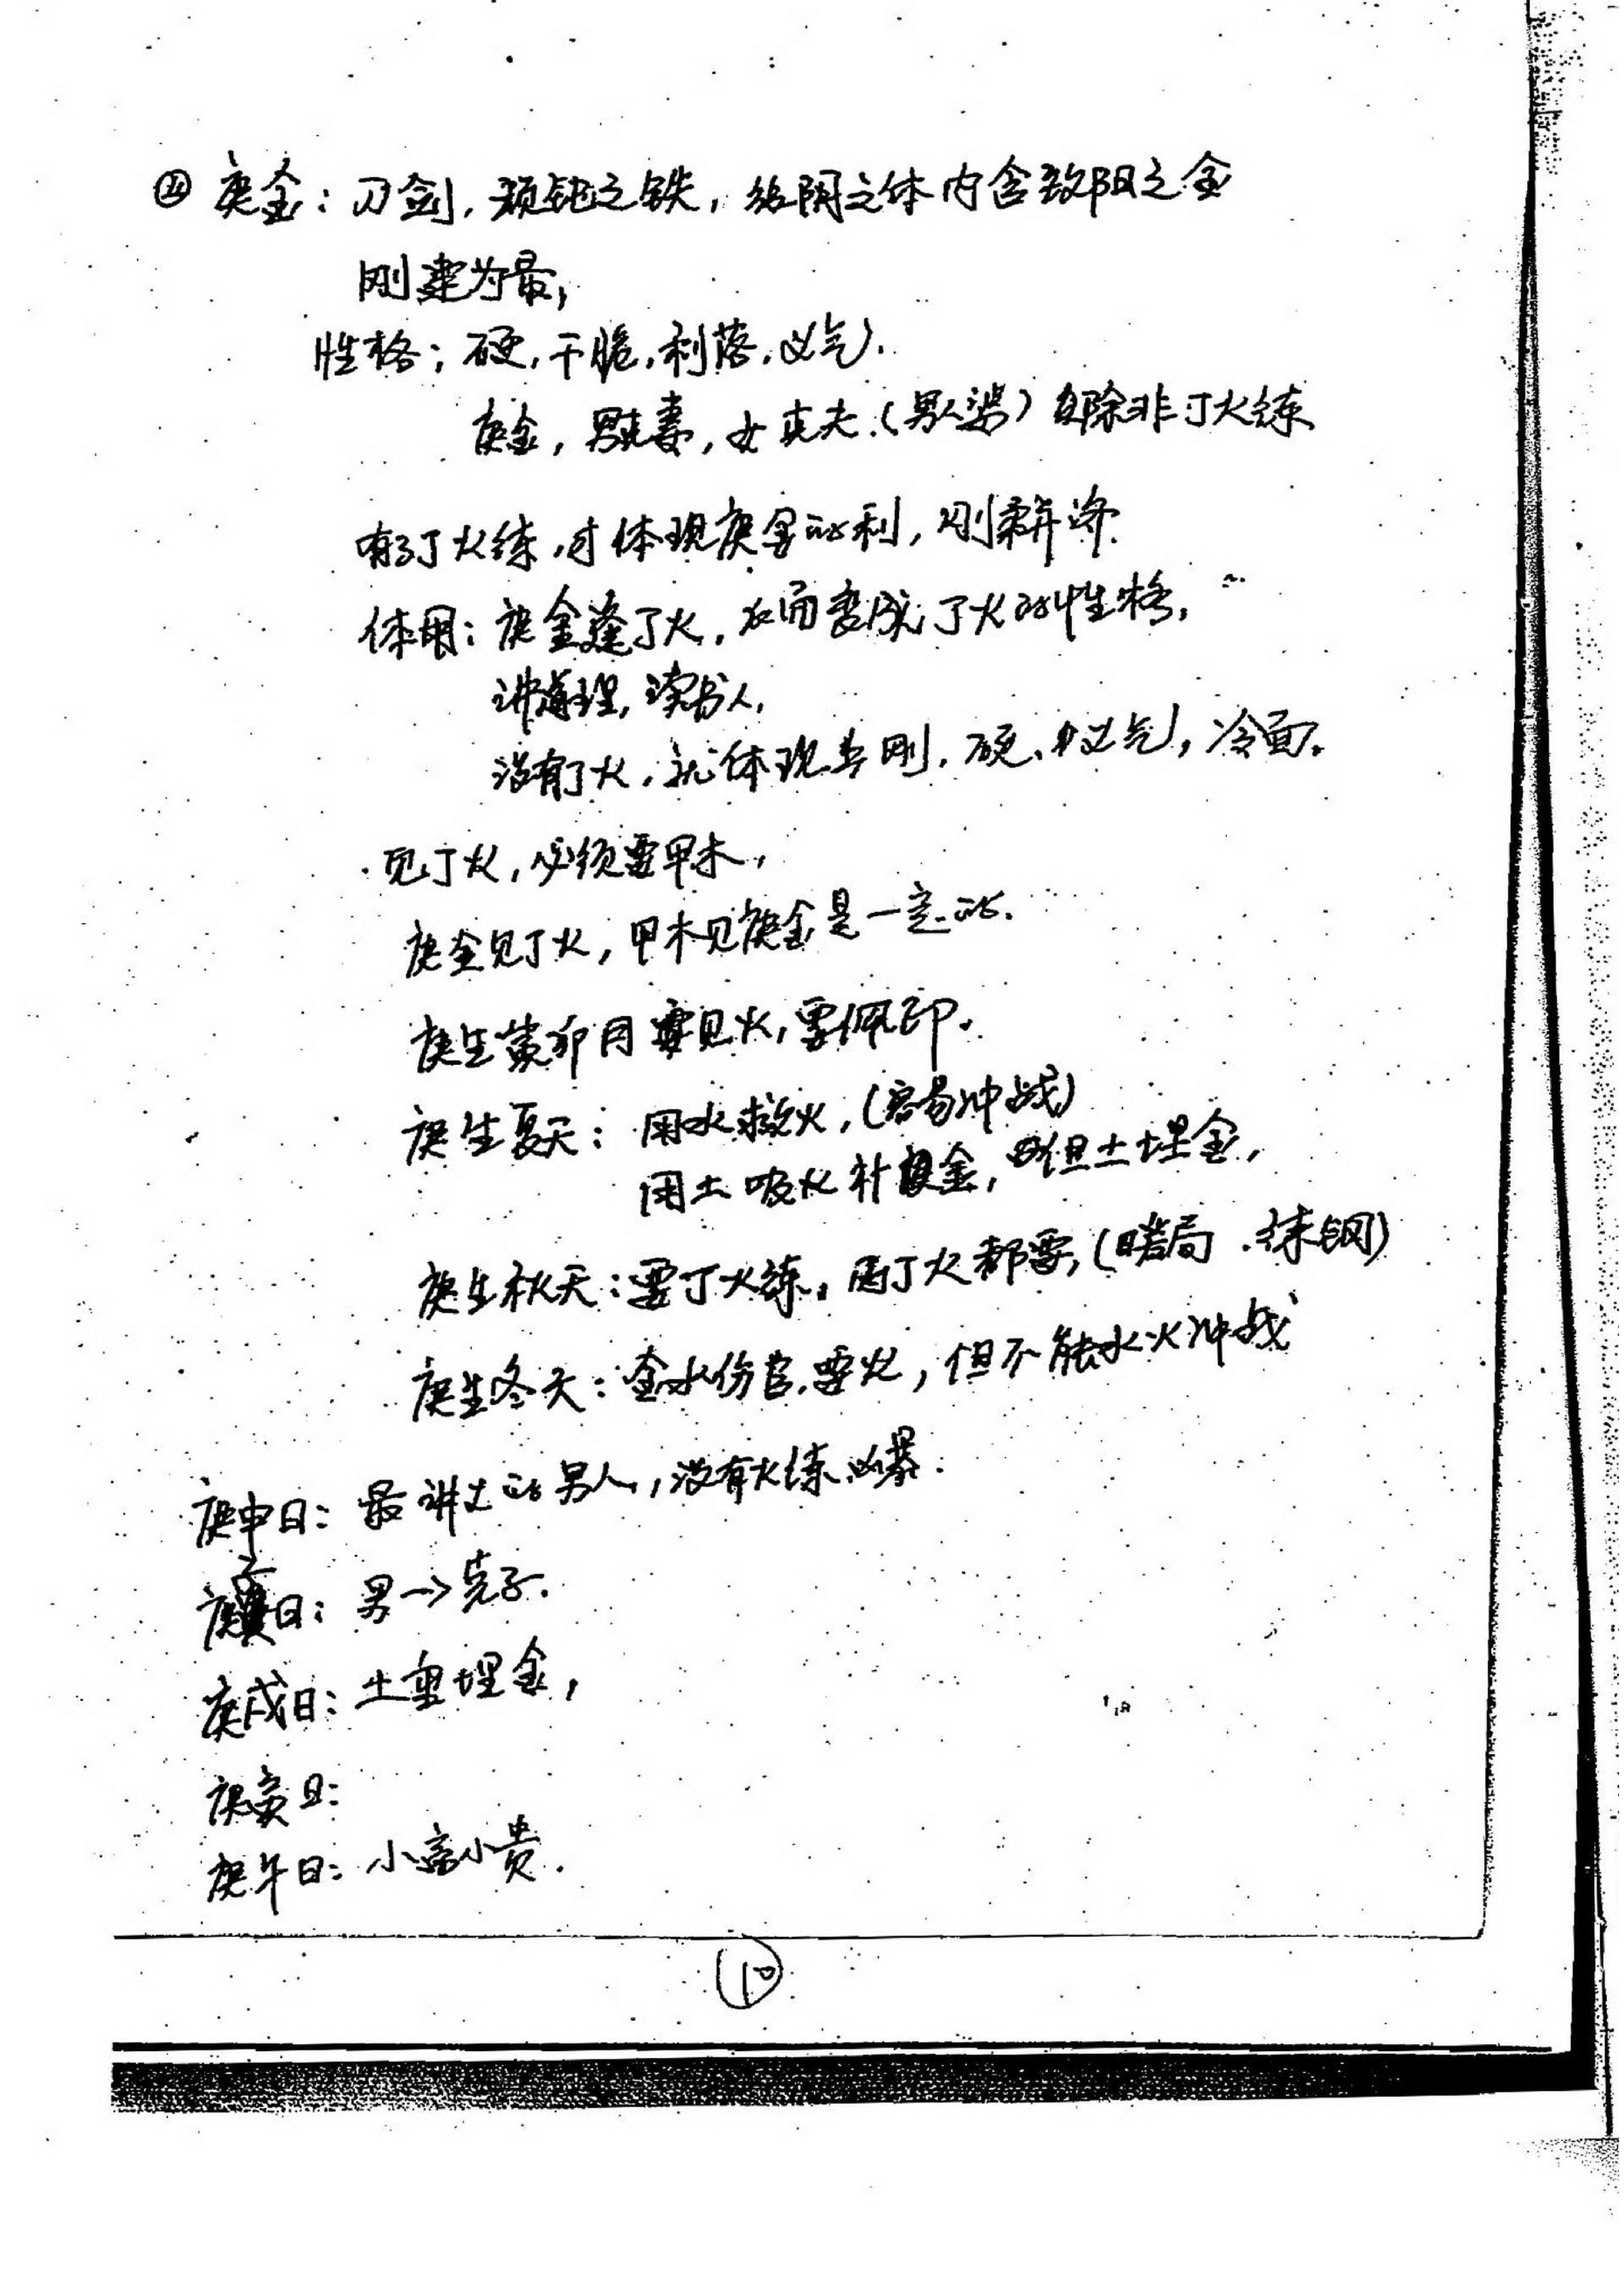 庚金：刀剑，顽钝之铁，纯阴之体内含致阳之金
刚建为最，
性格：硬，干脆，利落，义气．
庚金，男克妻，女克夫．（男人婆）除非丁火练
有了丁火练，才体现庚金的利，刚柔并济．
体用：庚金逢丁火，反而变成丁火的性格，
讲道理，读书人，
没有丁火，就体现其刚．硬、义气，冷面．
见丁火，必须要甲木，
庚金见丁火，甲木见庚金是一定的．
庚生寅卯月要见火，要佩印．
庚生夏天：用水救火，（容易冲战）
用土吸火补庚金，但土埋金，
庚生秋天：要丁火练，丙丁火都要，（局．练钢）
庚生冬天：金水伤官．要火，但不能水火冲战
庚申日：最讲义的男人，没有火练凶暴．
庚子日：男→克子．
庚戌日：土重埋金，
庚寅日：
庚午日：小富小贵．
10